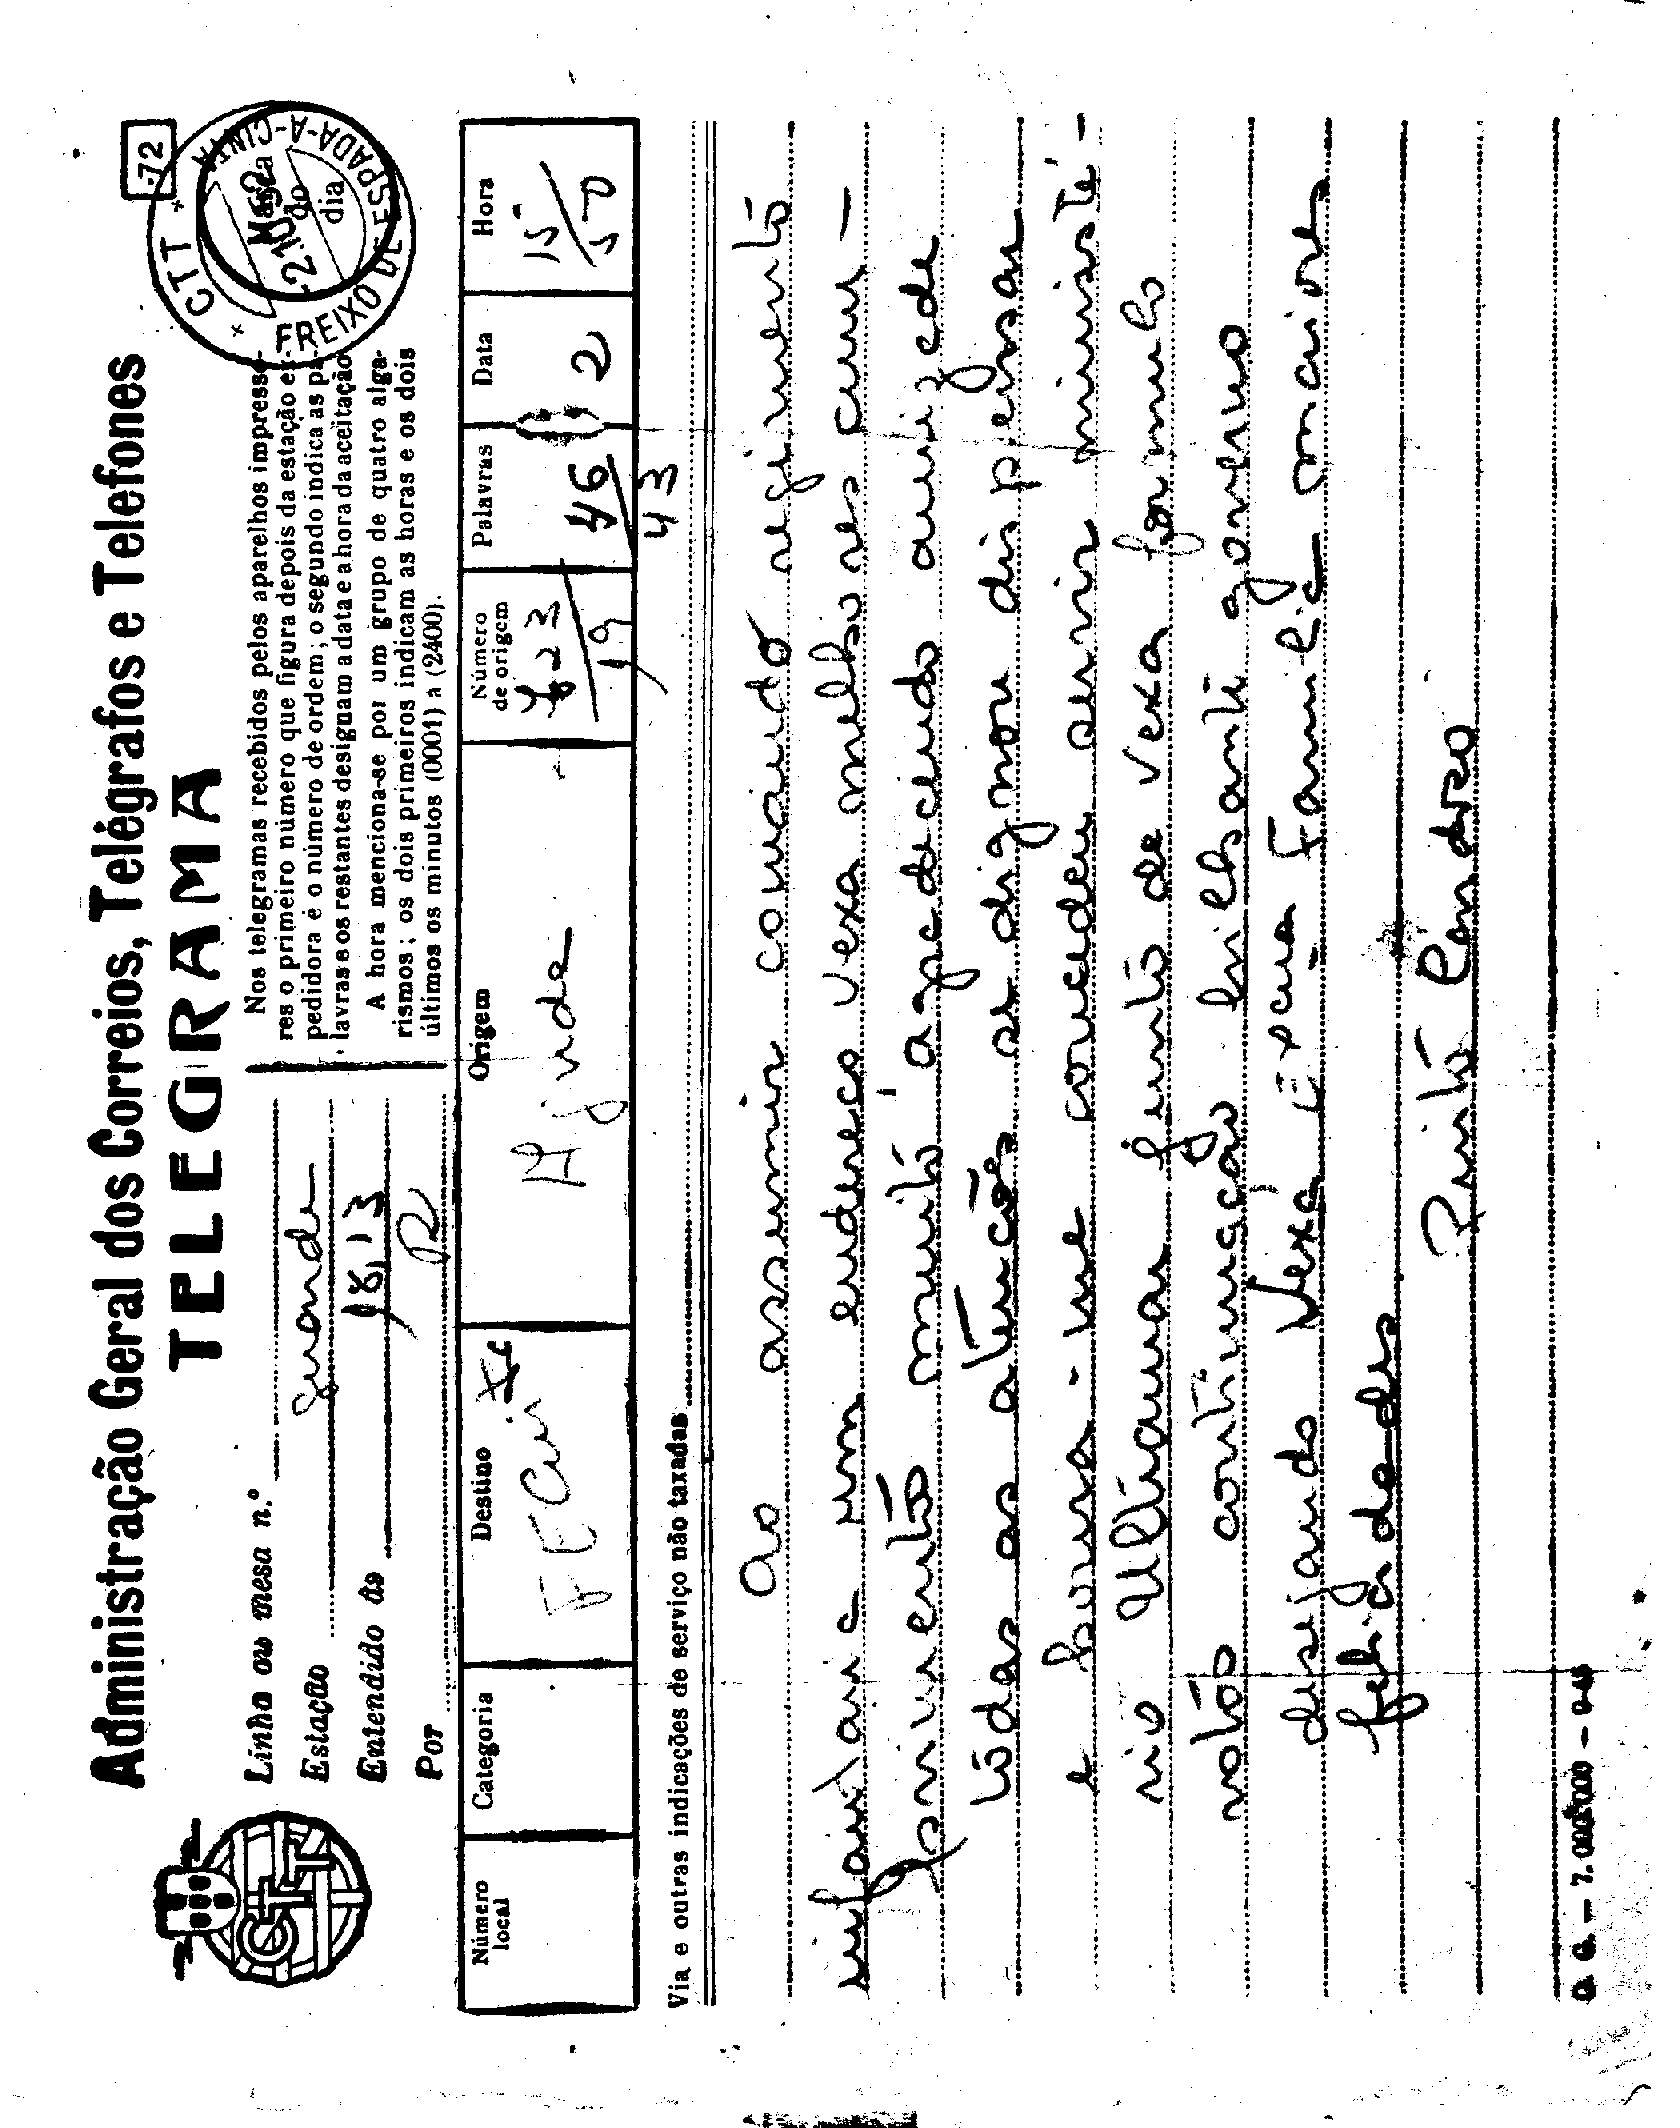 Administração Geral dos Correios, Telégrafos e Telefones
TELEGRAMA
72
CTT
FREIXO DE ESPADA-A-CINTA
Linha ou mesa n.º
Estação
Entendido às 18,13
Por
Nos telegramas recebidos pelos aparelhos impresso-
res o primeiro número que figura depois da estação ex-
pedidora é o número de ordem; o segundo indica as pa-
lavras e os restantes designam a data e a hora da aceitação
A hora menciona-se por um grupo de quatro alga-
rismos; os dois primeiros indicam as horas e os dois
últimos os minutos (0001) a (2400).
Número local
Categoria
Destino
Origem Ajuda
Número de origem 19
Palavras 46/43
Data 2
Hora 15/50
Via e outras indicações de serviço não taxadas
Ao assumir comando regimento
infantaria um endereço vexa melhores cum-
primentos muito agradecendo amizade
todas as atenções se dignou dispensar
e honra-me concedeu servir ministé-
rio Ultramar junto de vexa formulo
votos continuação brilhante governo
desejando Vexa Excma Família maiores
felicidades
Pinto Cardoso